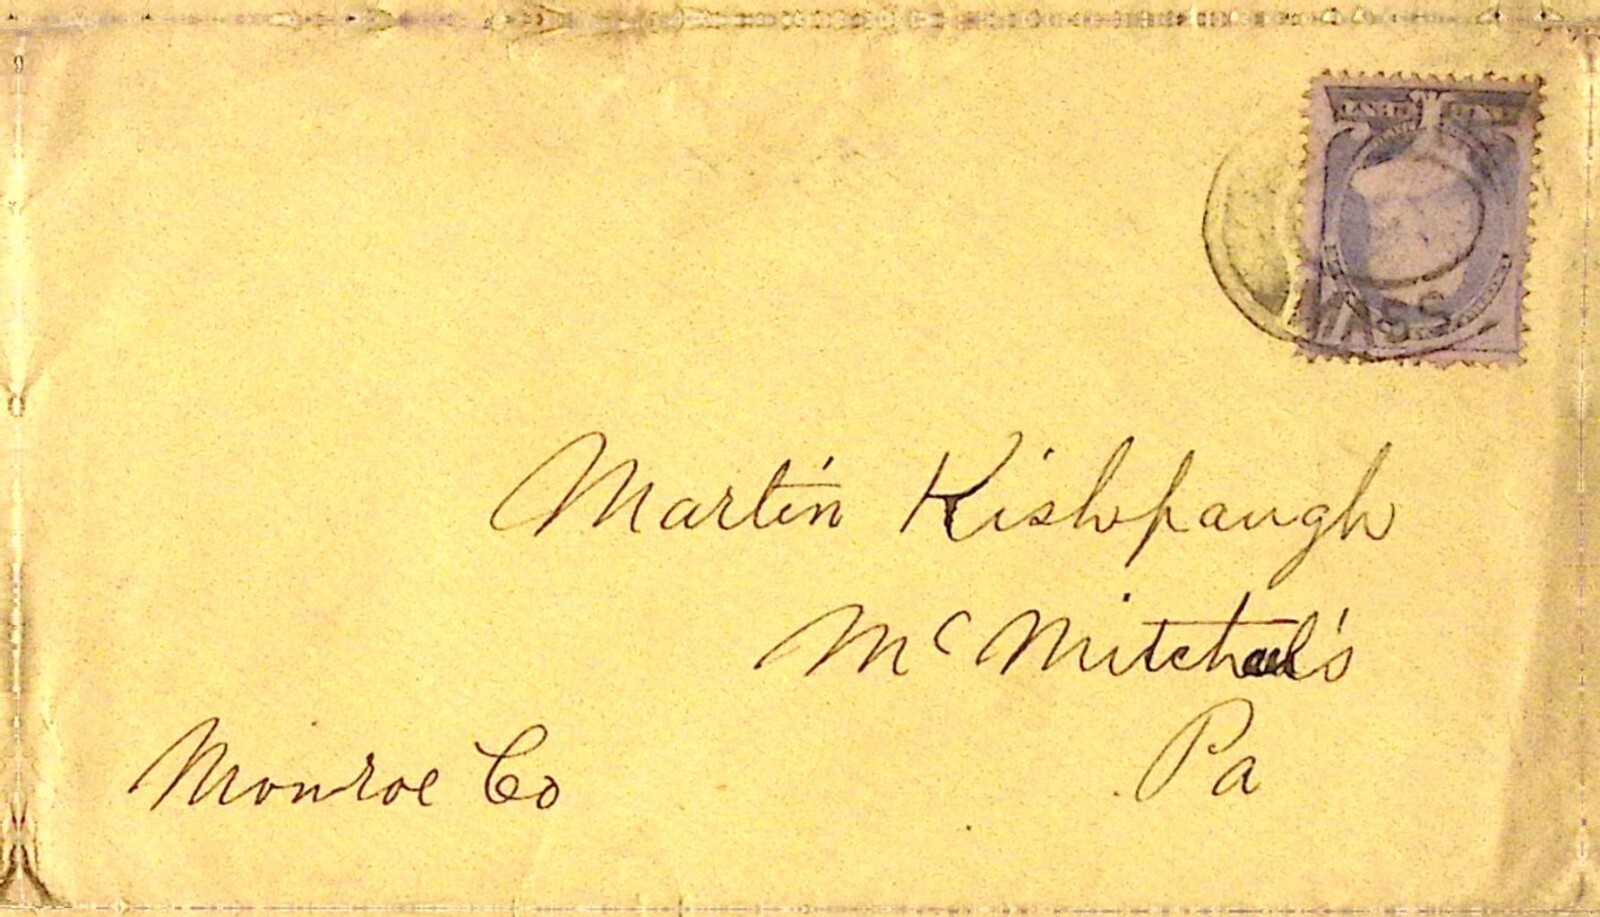 MASS
Martin Kishpaugh
Mc Mitchael's
Pa
Monroe Co